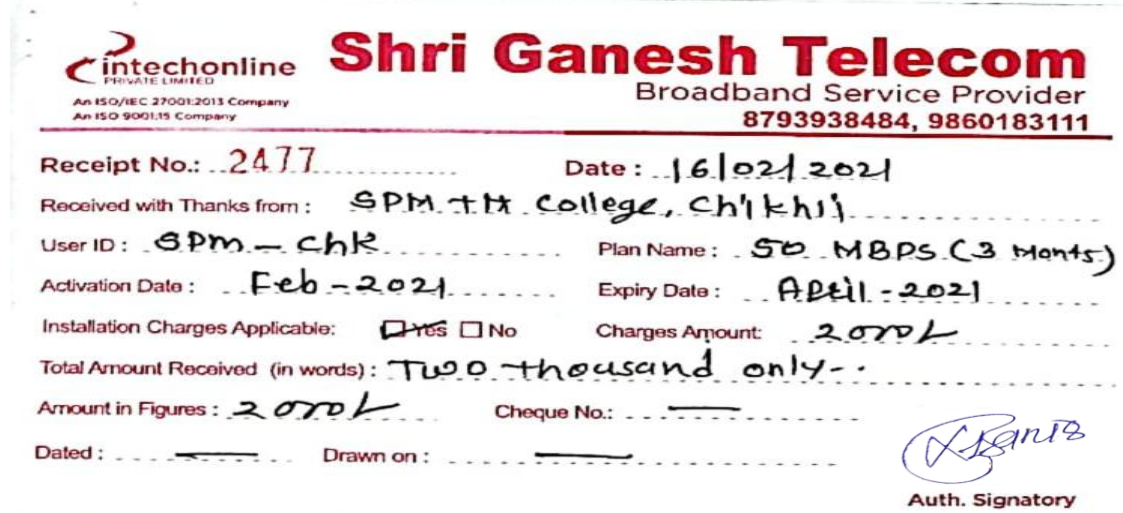 intechonline
PRIVATE LIMITED
An ISO/IEC 27001:2013 Company
An ISO 9001:15 Company
Shri Ganesh Telecom
Broadband Service Provider
8793938484, 9860183111
Receipt No.: 2477 Date : 16/02/2021
Received with Thanks from : SPM TM College, Chikhli
User ID : SPM - Chk Plan Name : 50 MBPS (3 Monts)
Activation Date : Feb - 2021 Expiry Date : APril - 2021
Installation Charges Applicable: Yes No Charges Amount: 2000/-
Total Amount Received (in words) : Two thousand only-
Amount in Figures : 2000/- Cheque No.: —
Dated : — Drawn on : —
Auth. Signatory